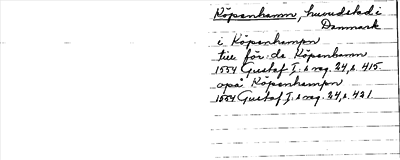 Köpenhamn, huvudstad i
Danmark
i Köpenhampn
till för: da Köpenhamn
1554 Gustaf I:s reg. 24, s. 415.
opå Köpenhampn
1554 Gustaf I:s reg. 24, s. 421.